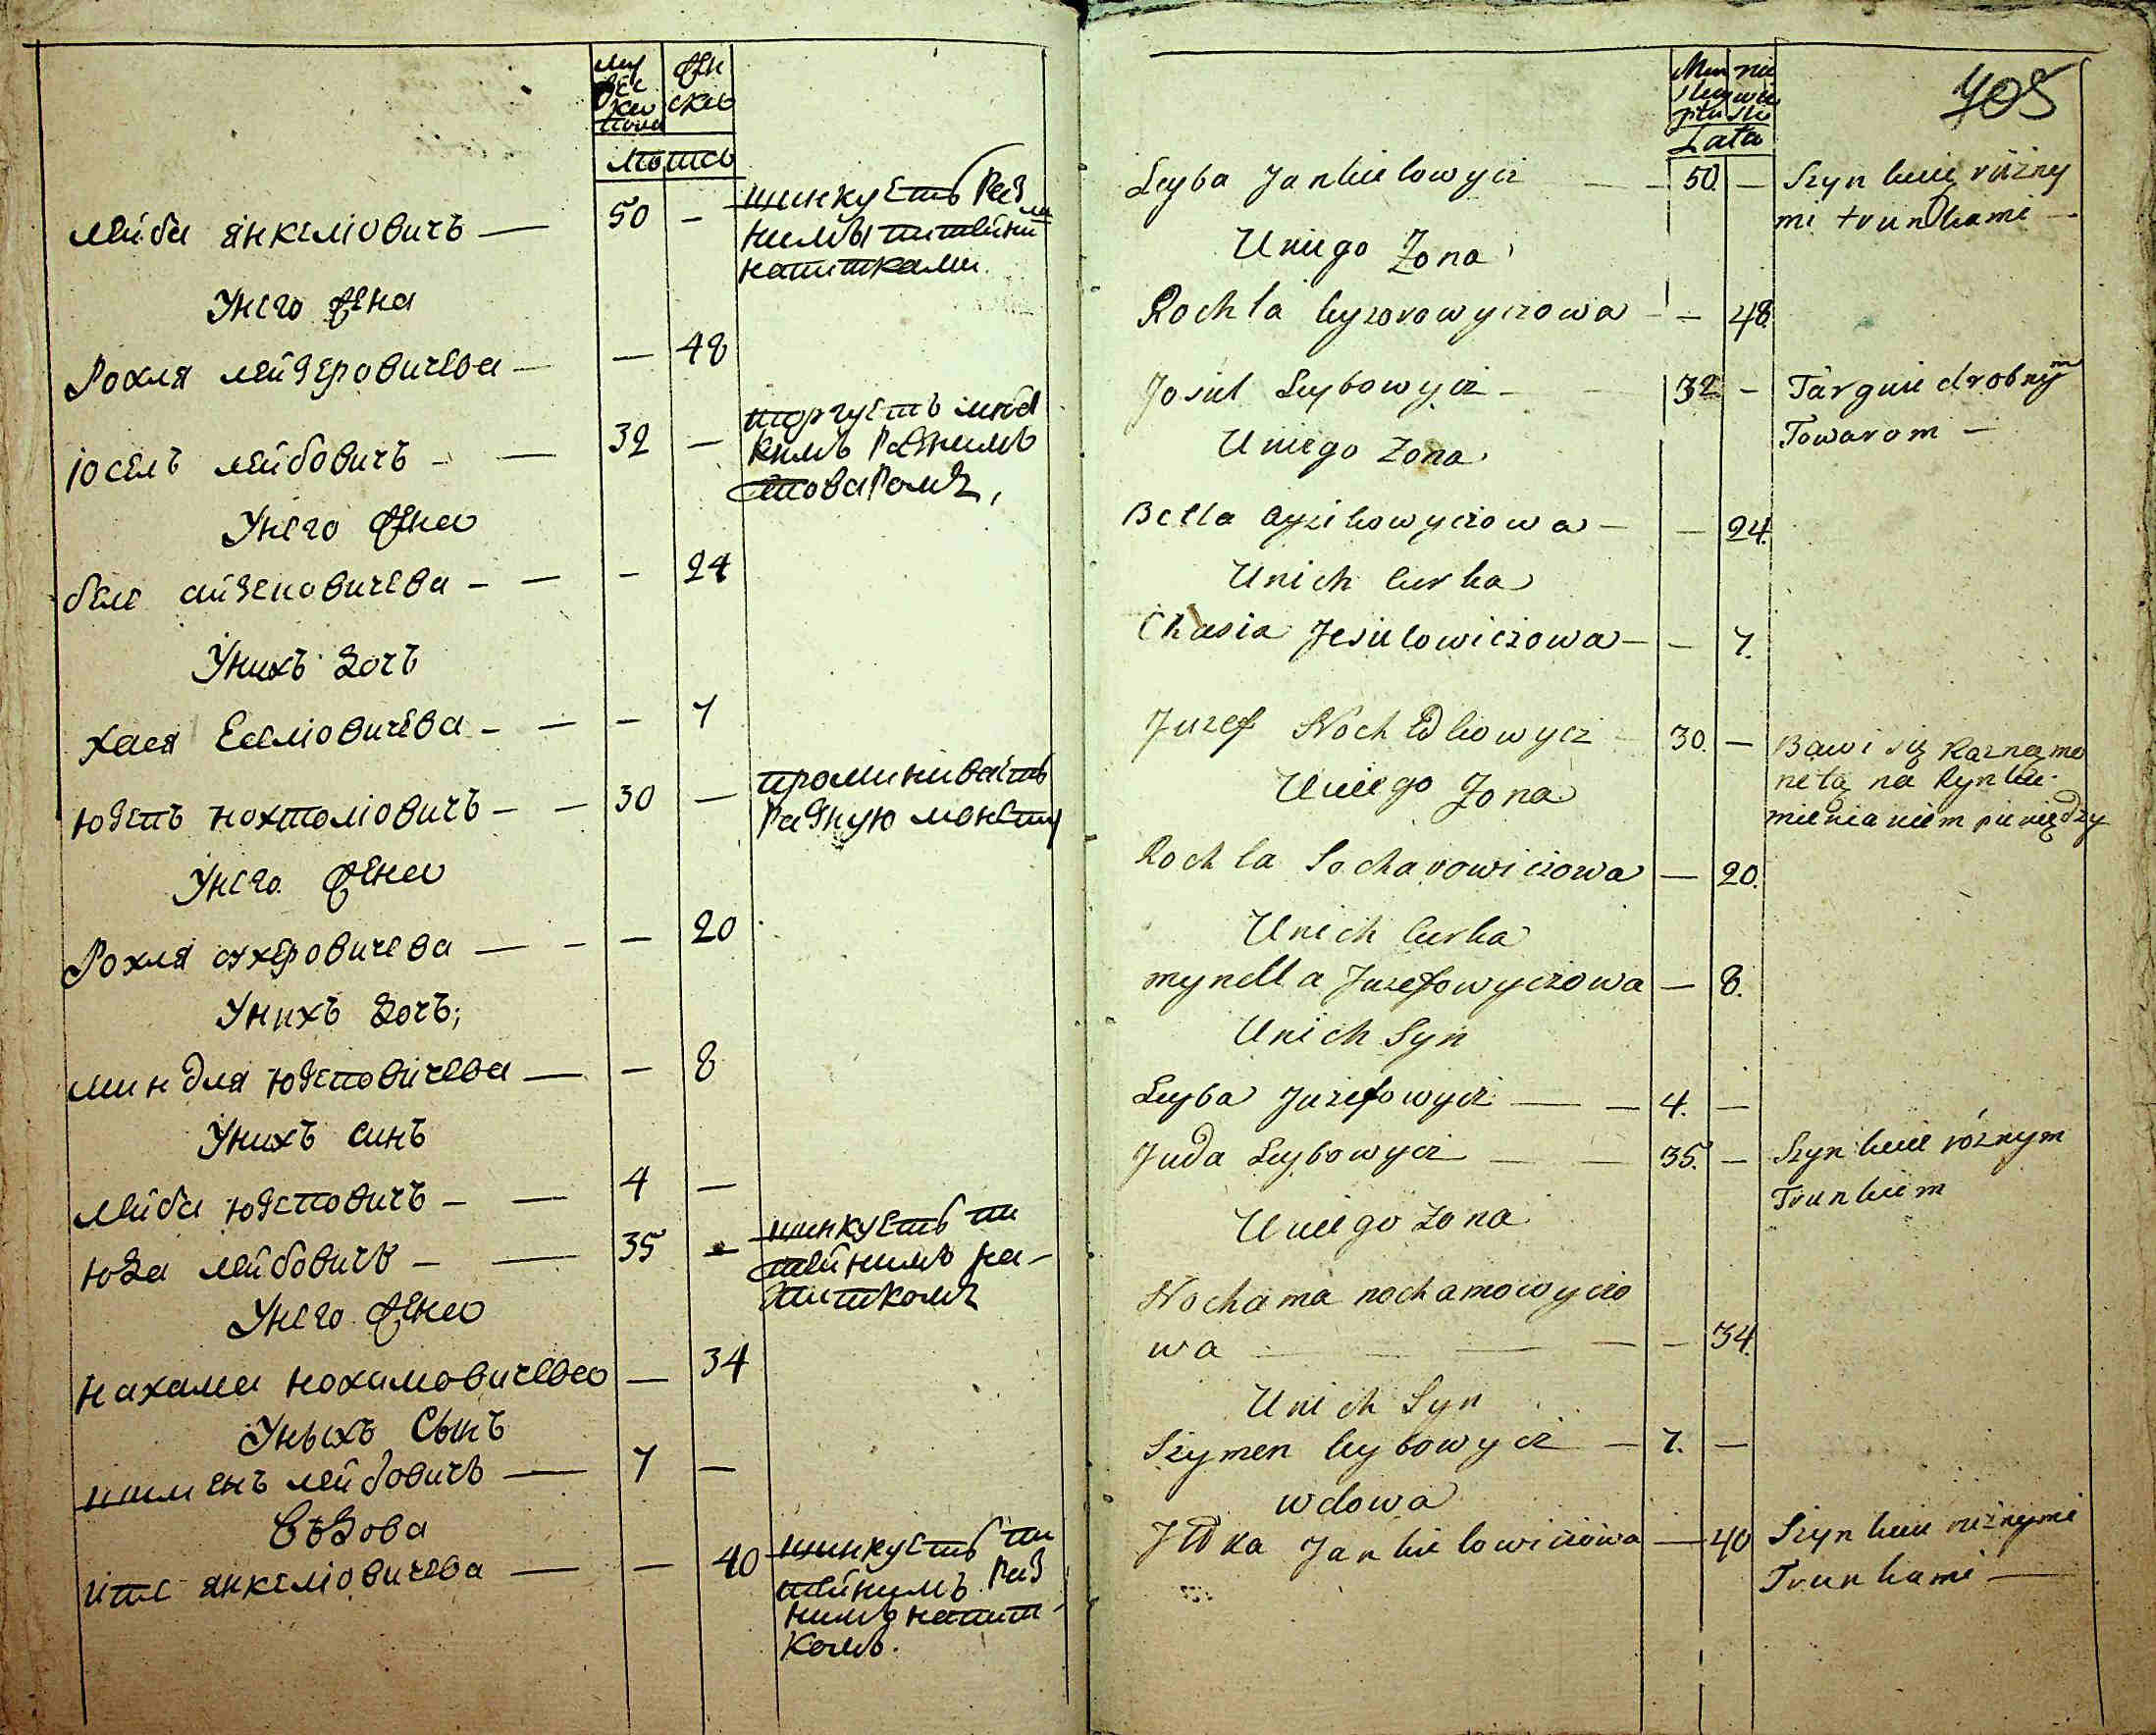 муж
еск
аго
пола
жен
ска
лѣтъ
лейба янкеліовичъ — 50 —
шинкуетъ раз
ними питейни
напитками.
Унего жена
Рохля лейзеровичева — — 48
іосель лейбовичъ — — 32 —
торгуетъ мѣл
кимъ разнимъ
товаромъ,
Унего жена
беле айзековичева — — — 24
Унихъ дочъ
хася Еселіовичева — — — 7
юзепъ нохтоліовичъ — — 30 —
променяваетъ
разную монету
Унего жена
Рохля сухеровичева — — — 20
Унихъ дочъ;
миндля юзеповичева — — 8
Унихъ синъ
лейба юзеповичъ — — 4 —
юда лейбовичъ — — 35 —
шинкуетъ пи
тейнимъ на-
питкомъ
Унего жена
нахама нохамовичева — 34
Уныхъ Сынъ
шименъ лейбовичъ — 7 —
Въдова
ите янкеліовичева — — 40
шинкуетъ пи
тейнимъ раз
нимъ напит
комъ.
705
Lata
Leyba Jankielowycz — — 50. —
Szynkuie różny
mi trunkami —
Uniego Zona
Rochla leyzorowyczowa — — 48
Josiel Leybowycz — 32 —
Targuie drobnym
Towarom —
Uniego Zona
Bella ayzikowyczowa — — 24.
Unich Curka
Chasia Jesielowiczowa — — 7.
Juzef Nochtolowycz — 30. —
Bawi się Razną mo
netą na Rynku
mienianiem pieniędzy
Uniego Zona
Rochla Socharowiczowa — 20.
Unich Curka
myndla Juzefowyczowa — 8.
Unich Syn
Leyba Juzefowycz — — 4. —
Juda Leybowycz — — 35. —
Szynkuie róznym
Trunkiem
Uniego Zona
Nochama nochamowyczo
wa — — — — — 34.
Unich Syn
Szymen leybowycz — 7. —
wdowa
Jtka Jankielowiczowa — 40
Szynkuie różnymi
Trunkami —